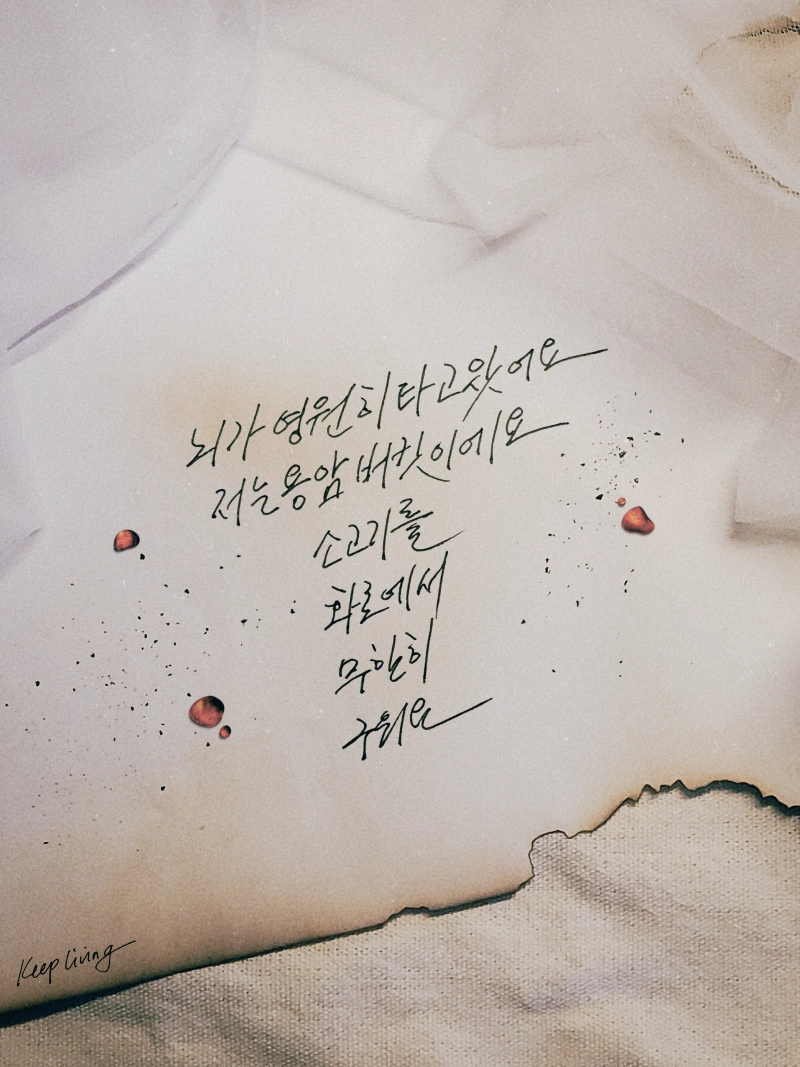 뇌가 영원히 타고 있어요
저는 용암 버킷이에요
소고기를
화로에서
무한히
구워요
Keep living